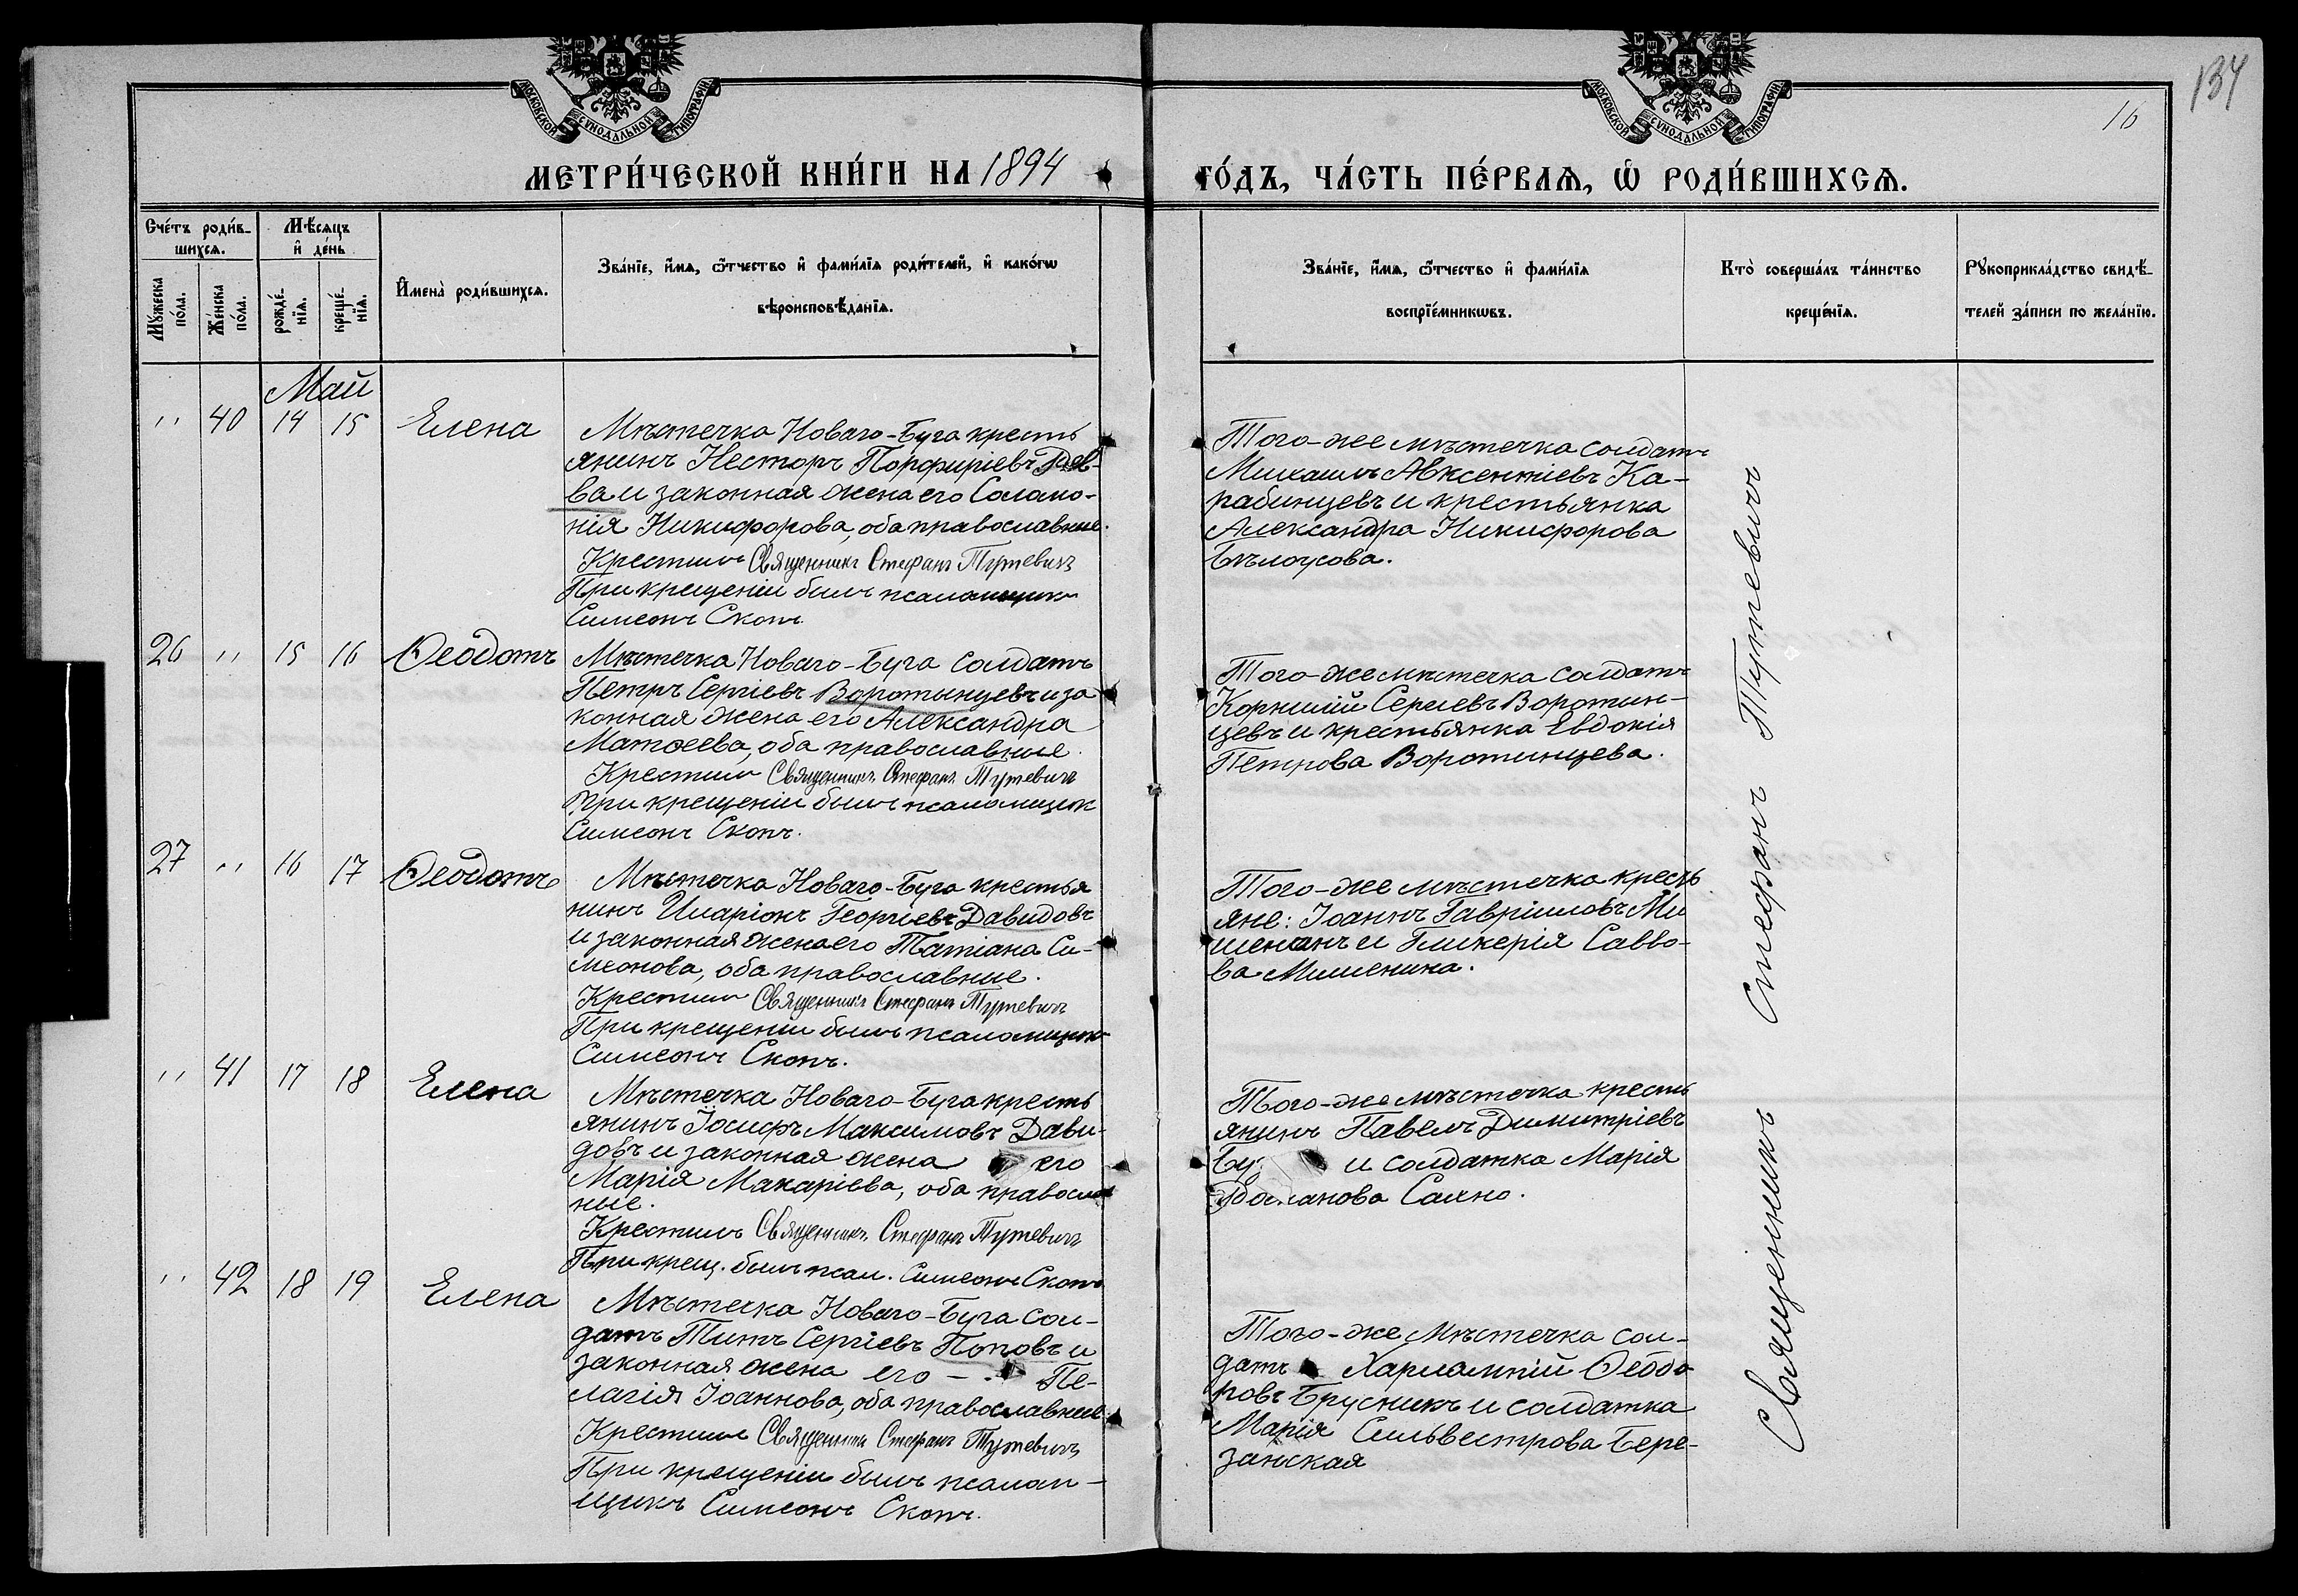 134
16
МОСКОВСКОЙ СѴНОДАЛЬНОЙ ТИПОГРАФІИ
МОСКОВСКОЙ СѴНОДАЛЬНОЙ ТИПОГРАФІИ
МЕТРИ́ЧЕСКОЙ КНИ́ГИ НА 1894 ГО́ДЪ, ЧА́СТЬ ПЕ́РВАѦ, Ѡ҆ РОДИ́ВШИХСѦ.
Сче́тъ роди́в-
шихсѧ.
Мѣ́сѧцъ
и҆ де́нь
Мꙋ́жеска
по́ла.
Же́нска
по́ла.
рожде́-
нїѧ.
креще́-
нїѧ.
И҆мена̀ роди́вшихсѧ.
Зва́нїе, и҆́мѧ, ѻ҆́тчество и҆ фами́лїѧ роди́телей, и҆ како́гѡ
вѣроисповѣ́данїѧ.
Зва́нїе, и҆́мѧ, ѻ҆́тчество и҆ фами́лїѧ
воспрїе́мникѡвъ.
Кто̀ соверша́лъ та́инство
креще́нїѧ.
Рꙋкоприкла́дство свидѣ́-
телей за́писи по жела́нїю.
Май
" 40 14 15 Елена
Мѣстечка Новаго-Буга кресть
янинъ Несторъ Порфиріевъ
ва и законная жена его Соломо-
нія Никифорова, оба православные.
Крестилъ Священникъ Стефанъ Тутевичъ
При крещеніи былъ псаломщикъ
Симеонъ Скопъ.
Того-же мѣстечка солдатъ
Михаилъ Авксентіевъ Ка-
рабинцевъ и крестьянка
Александра Никифорова
Бѣлоусова.
26 " 15 16 Ѳеодотъ
Мѣстечка Новаго-Буга солдатъ
Петръ Сергіевъ Воротынцевъ и за
конная жена его Александра
Матѳеева, оба православные.
Крестилъ Священникъ Стефанъ Тутевичъ
При крещеніи былъ псаломщик
Симеонъ Скопъ.
Того-же мѣстечка солдатъ
Корнилій Сергіевъ Воротын-
цевъ и крестьянка Евдокія
Петрова Воротынцева.
27 " 16 17 Ѳеодотъ
Мѣстечка Новаго-Буга крестья
нинъ Иларіонъ Георгіевъ Давидовъ
и законная жена его Татіана Си-
меонова, оба православные.
Крестилъ Священникъ Стефанъ Тутевичъ
При крещеніи былъ псаломщикъ
Симеонъ Скопъ.
Того-же мѣстечка кресть
яне: Іоаннъ Гавріиловъ Ми
шенинъ и Гликерія Савво-
ва Мишенина.
" 41 17 18 Елена
Мѣстечка Новаго-Буга кресть
янинъ Іосифъ Максимовъ Дави-
довъ и законная жена его
Марія Макаріева, оба православ
ные.
Крестилъ Священникъ Стефанъ Тутевичъ
При крещ. былъ псал. Симеонъ Скопъ
Того-же мѣстечка кресть
янинъ Павелъ Димитріевъ
и солдатка Марія
Романова Саяно.
" 42 18 19 Елена
Мѣстечка Новаго-Буга сол-
датъ Титъ Сергіевъ Поповъ и
законная жена его - Пе-
лагія Іоаннова, оба православные.
Крестилъ Священникъ Стефанъ Тутевичъ
При крещеніи былъ псалом-
щикъ Симеонъ Скопъ.
Того-же мѣстечка сол-
датъ Харлампій Ѳеодо
ровъ Брусникъ и солдатка
Марія Сильвестрова Бере-
занская
Священникъ Стефанъ Тутевичъ